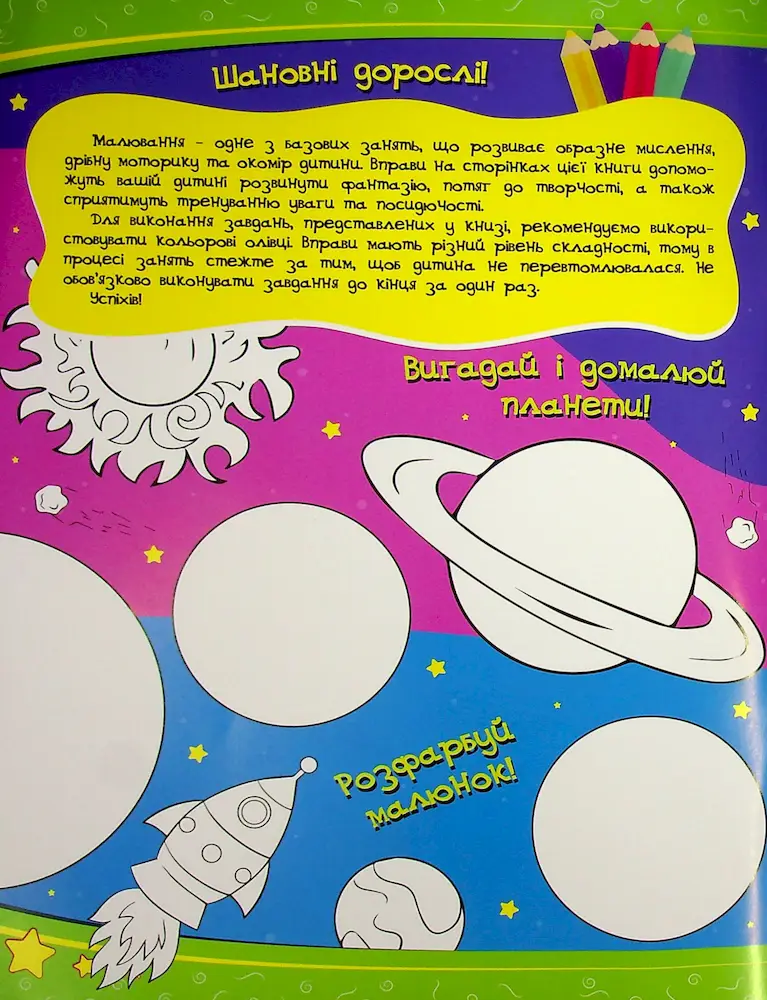 Шановні дорослі!
Малювання – одне з базових занять, що розвиває образне мислення,
дрібну моторику та окомір дитини. Вправи на сторінках цієї книги допомо-
жуть вашій дитині розвинути фантазію, потяг до творчості, а також
сприятимуть тренуванню уваги та посидючості.
Для виконання завдань, представлених у книзі, рекомендуємо викори-
стовувати кольорові олівці. Вправи мають різний рівень складності, тому в
процесі занять стежте за тим, щоб дитина не перевтомлювалася. Не
обов'язково виконувати завдання до кінця за один раз.
Успіхів!
Вигадай і домалюй
планети!
Розфарбуй
малюнок!